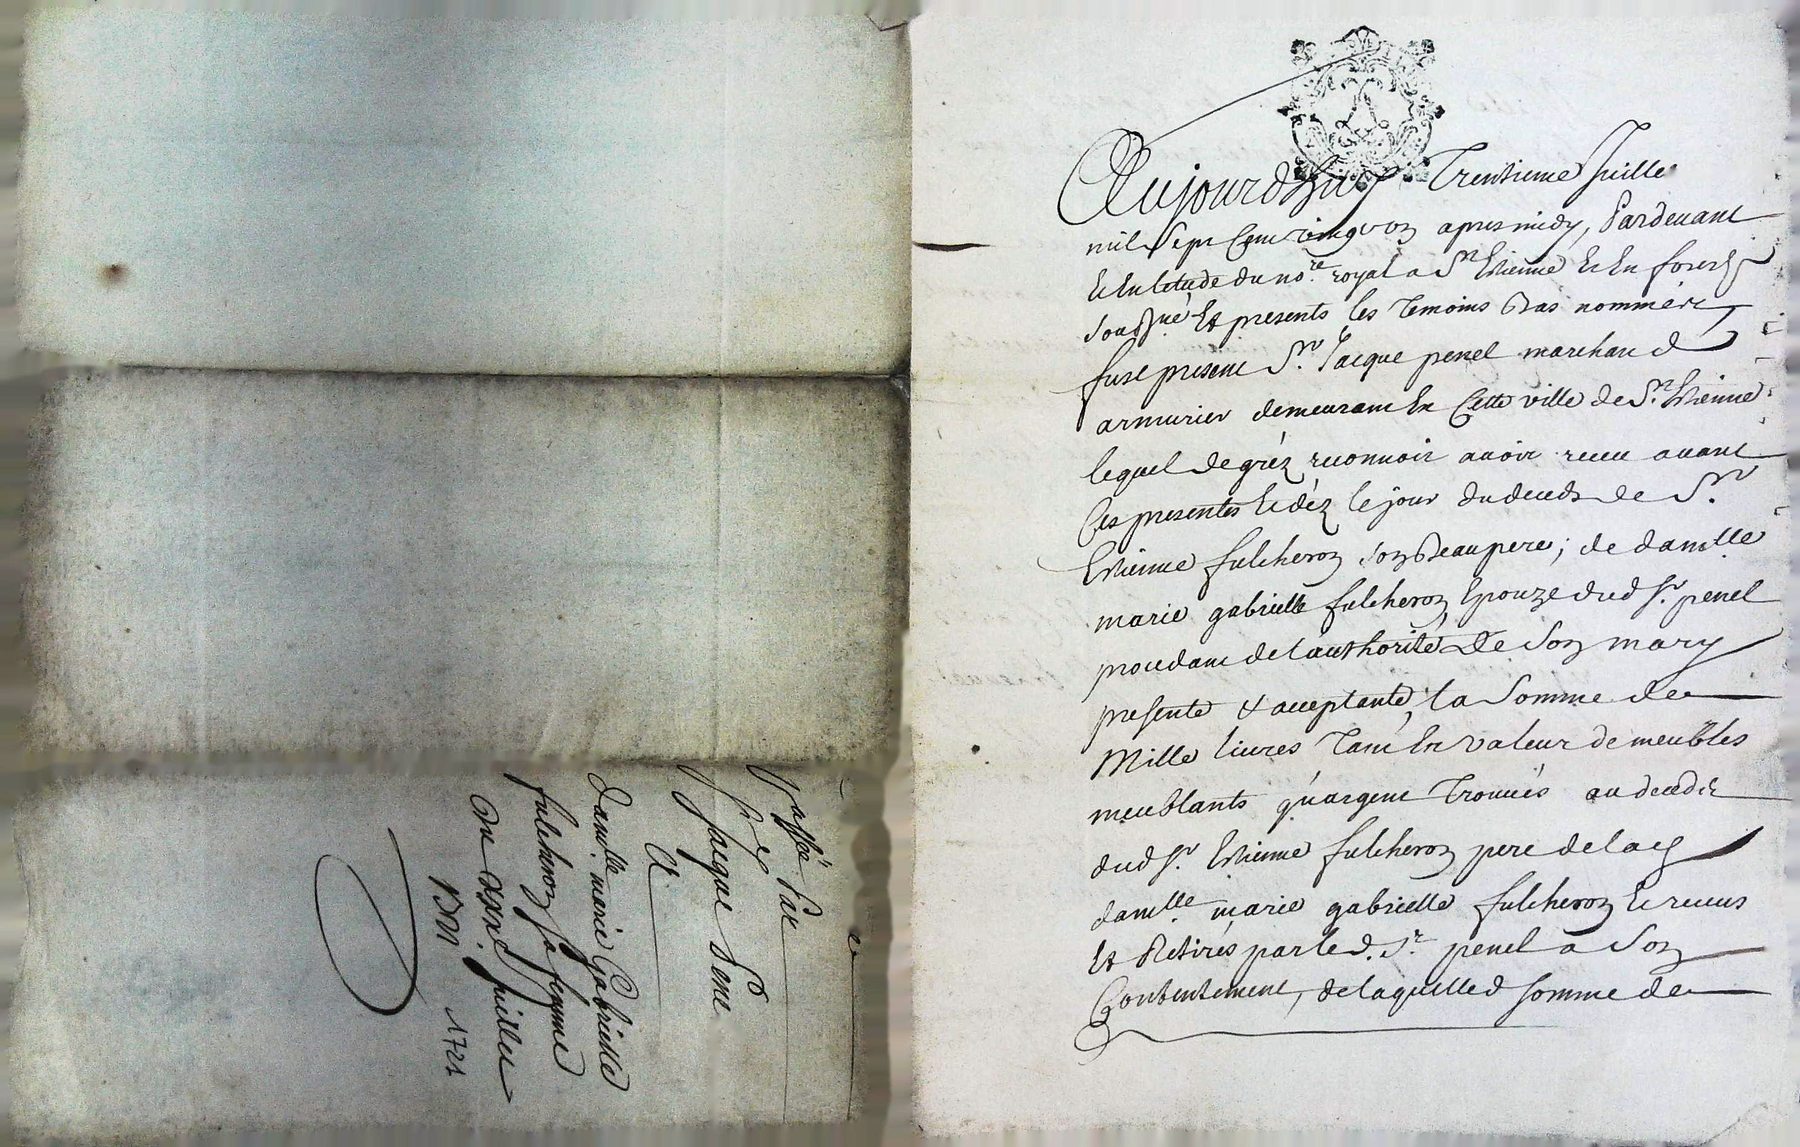 quittce. Par
Sr Jacque penel
A
damlle. marie Gabrielle
fulcheron sa femme
Du xxxe Juillet
1721
Aujourdhuy Trentieme Juille
mil Sept Cent vingt un apres midy, Pardevant
Et En letude du nore. royal a St Etienne Et En forest
Sousgné Et presents les Temoins Bas nommées
fust present Sr. Jacque penel marchand
armurier demeurant En Cette ville de St. Etienne
lequel de gréz reconnoit avoir receu avant
Ces presentes Et déz le jour du deceds de Sr.
Etienne fulcheron son Beaupere; de damlle
marie gabrielle fulcheron Epouze dud Sr. penel
procedant de lauthorité De Son mary
presente & acceptante, la Somme de
Mille livres Tant En valeur de meubles
meublants qu'argent Trouvés au deceds
dud Sr Etienne fulcheron pere de lad
damlle. marie gabrielle fulcheron Et receus
Et Retirés par led. Sr. penel a Son
Contentement, de laquelle d somme de